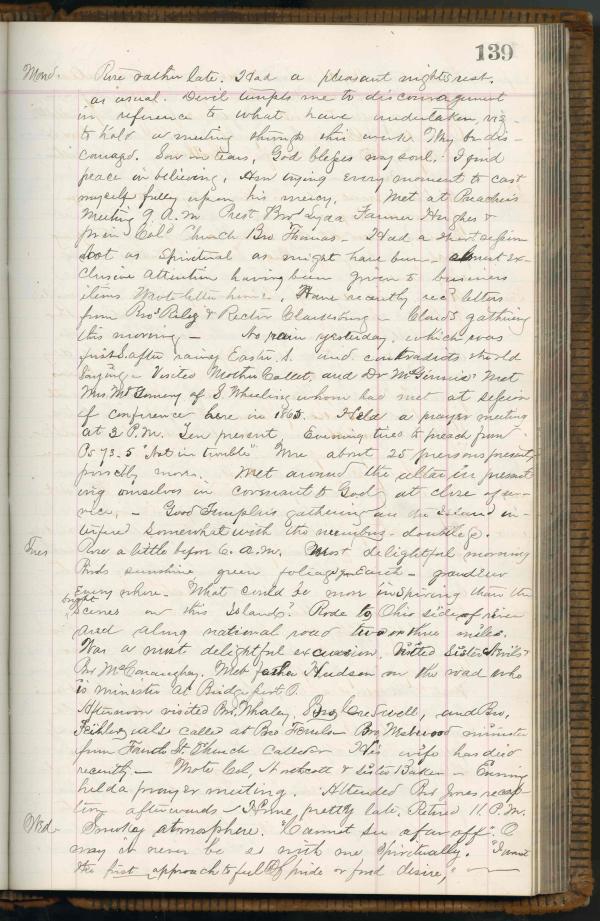 139
Mond. Rose rather late. Had a pleasant night's rest.
as usual. Devil tempts me to discouragement
in reference to what have undertaken viz -
to hold a meeting through this week. Why be dis-
couraged. Sow in tears, God blesses my soul. I find
peace in believing. Am trying every moment to cast
myself fully upon his mercy. Met at Preachers
Meeting 9 A.M. Prest Bros Lyda Fanner Hughes &
from Cold Church Bro Thomas - Had a short session
Not as Spiritual as might have been - almost ex-
clusive attention having been given to business
items Wrote letter home. Have recently recd letters
from Bros Riley & Rector Clarksburg - Clouds gathering
this morning - No rain yesterday, which was
first S. after rainy Easter S. and contradicts the old
Saying - Visited Mother and Dr McGinnis Met
Mrs. Mt Gomery of S. Wheeling whom had met at session
of conference here in 1865. Held a prayer meeting
at 3 P.M. Ten present. Evening tried to preach from
Ps 73.5 "Not in trouble" Were about 25 persons present
possibly more. Met around the altar in present
ing ourselves in covenant to God, at close of ser-
vice. - Good Templars gathering on the Island in-
terfered somewhat with the numbers - doubtless.
Tues Rose a little before 6. A.M. Most delightful morning
Birds sunshine green foliage Earth - grandeur
Every where - What could be more inspiring than the
bright scenes on this Island? Rode to Ohio side of river
and along national road two or three miles.
Was a most delightful excursion. Visited Sister
Bro McConaughey. Met father Hudson on the road who
is minister at Bridgeport O.
Afternoon visited Bro. Whaley, Bro Creswell, and Bro.
also called at Bro Bro minister
from Fourth St. Church Called on His wife has died
recently - Wrote Col, & Sister Baker - Evening
held a prayer meeting. Attended Bro Jones recep
tion afterwards - Home, pretty late. Retired 11. P.M.
Wed. Smokey atmosphere. "Cannot see afar off". O
may it never be so with me Spiritually. "I want
the first approach to feel Of pride or fond desire," -